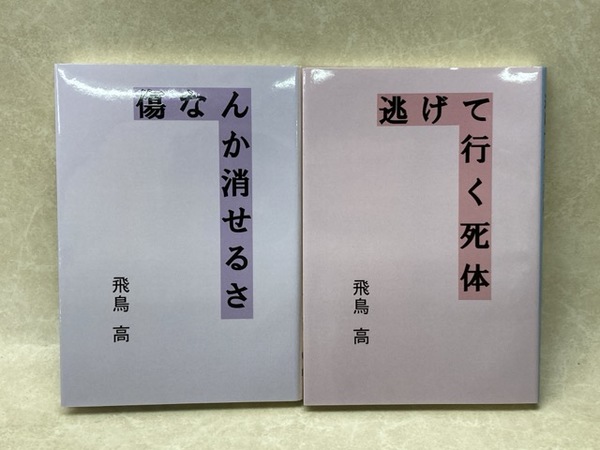 傷なんか消せるさ
飛鳥 高
逃げて行く死体
飛鳥 高